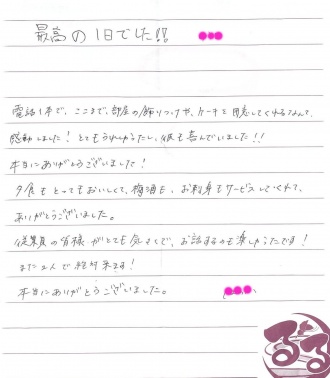 最高の1日でした!!
電話1本で、ここまで、部屋の飾りつけや、ケーキを用意してくれるなんて、
感動しました!とてもうれしかったし、彼も喜んでいました!!
本当にありがとうございました!
夕食もとってもおいしくて、梅酒も、お刺身もサービスしてくれて、
ありがとうございました。
従業員の皆様がとても気さくで、お話するのも楽しかったです!
また2人で絶対来ます!
本当にありがとうございました。